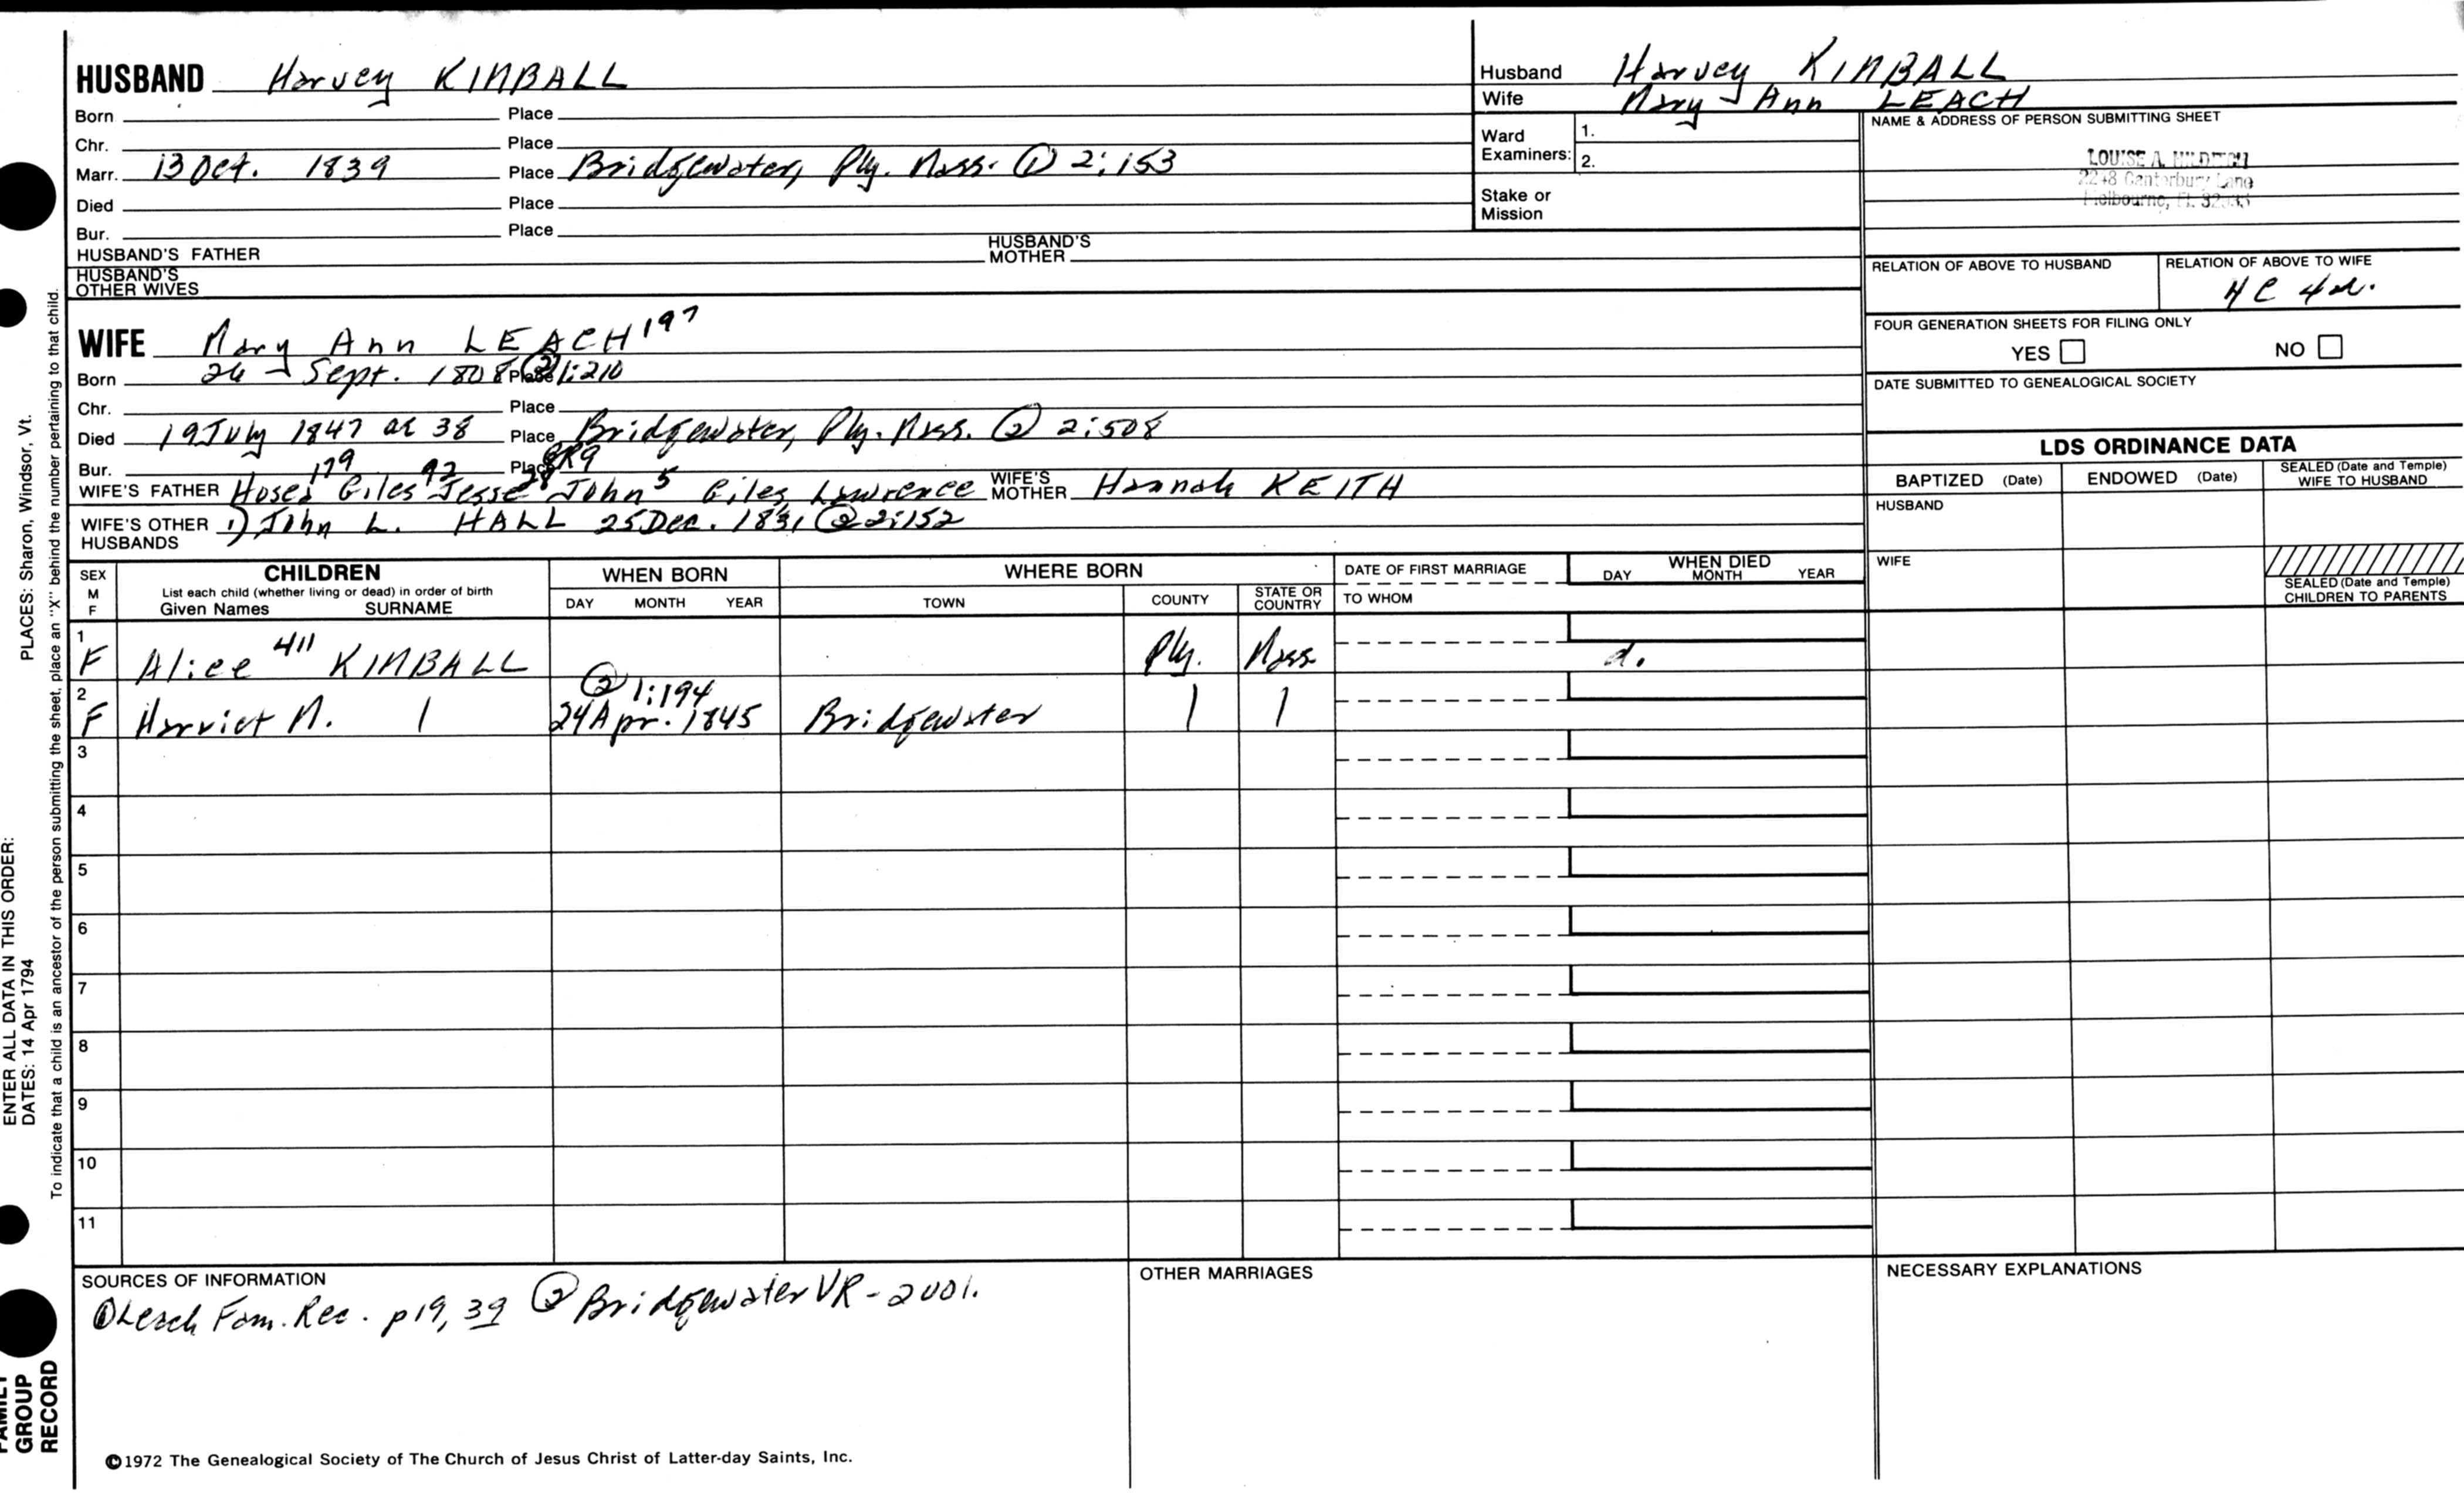 HUSBAND Harvey KIMBALL
Born Place
Chr. Place
Marr. 13 Oct. 1839 Place Bridgewater, Ply. Mass. ① 2:153
Died Place
Bur. Place
HUSBAND'S FATHER HUSBAND'S MOTHER
HUSBAND'S OTHER WIVES
Husband Harvey KIMBALL
Wife Mary Ann LEACH
Ward Examiners: 1.
2.
Stake or Mission
NAME & ADDRESS OF PERSON SUBMITTING SHEET
LOUISE A.
2248 Canterbury Lane
Melbourne, FL
RELATION OF ABOVE TO HUSBAND
RELATION OF ABOVE TO WIFE
FOUR GENERATION SHEETS FOR FILING ONLY
YES NO
DATE SUBMITTED TO GENEALOGICAL SOCIETY
WIFE Mary Ann LEACH 197
Born 26 Sept. 1808 ② 1:210 Place
Chr. Place
Died 19 July 1847 ae 38 Place Bridgewater, Ply. Mass. ② 2:508
Bur. Place
WIFE'S FATHER Hosea 179 Giles 92 Jesse 28 John 5 Giles Lawrence WIFE'S MOTHER Hannah KEITH
WIFE'S OTHER HUSBANDS 1) John L. HALL 25 Dec. 1831 ② 2:152
LDS ORDINANCE DATA
BAPTIZED (Date) ENDOWED (Date) SEALED (Date and Temple) WIFE TO HUSBAND
HUSBAND
WIFE
SEALED (Date and Temple) CHILDREN TO PARENTS
SEX M F
CHILDREN
List each child (whether living or dead) in order of birth
Given Names SURNAME
WHEN BORN
DAY MONTH YEAR
WHERE BORN
TOWN COUNTY STATE OR COUNTRY
DATE OF FIRST MARRIAGE
TO WHOM
WHEN DIED
DAY MONTH YEAR
1 F Alice 411 KIMBALL Ply. Mass d.
2 F Harriet M. | ② 1:194 24 Apr. 1845 Bridgewater | |
3
4
5
6
7
8
9
10
11
SOURCES OF INFORMATION
① Leach Fam. Rec. p19, 39 ② Bridgewater VR - 2001.
OTHER MARRIAGES
NECESSARY EXPLANATIONS
©1972 The Genealogical Society of The Church of Jesus Christ of Latter-day Saints, Inc.
ENTER ALL DATA IN THIS ORDER:
DATES: 14 Apr 1794 PLACES: Sharon, Windsor, Vt.
To indicate that a child is an ancestor of the person submitting the sheet, place an "X" behind the number pertaining to that child.
FAMILY
GROUP
RECORD